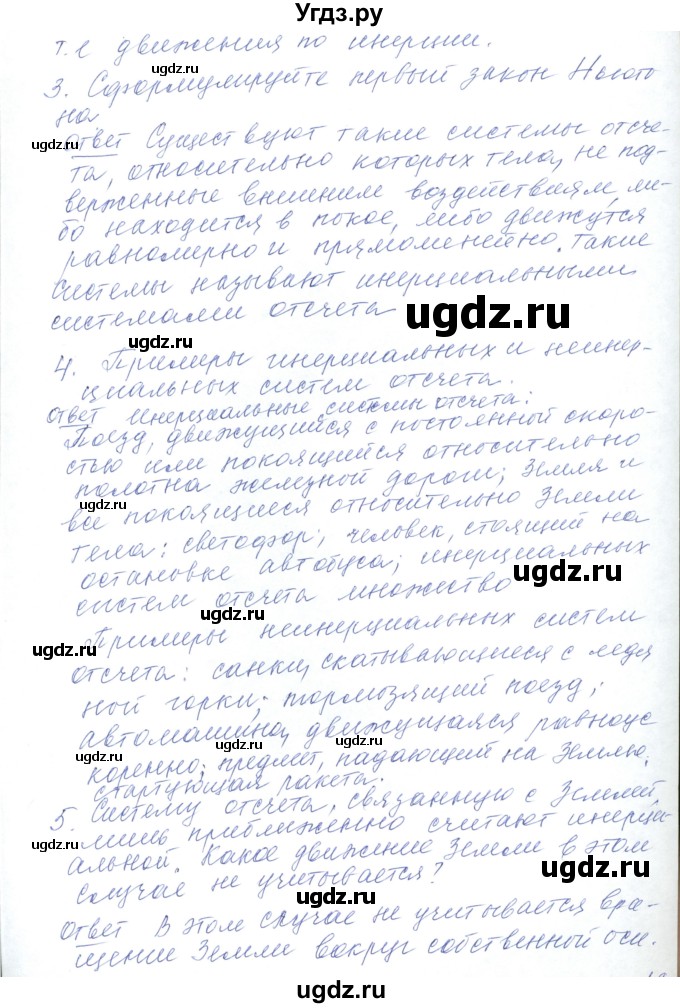 Угдз.ру
т.е движения по инерции.
ugdz.ru
3. Сформулируйте первый закон Ньюто
на
ugdz.ru
Ответ Существуют такие системы отсче-
та, относительно которых тела, не под-
верженные внешним воздействиям, ли-
бо находится в покое, либо движутся
равномерно и прямоменейно. Такие
системы называют инерциальными
системами отсчета
ugdz.ru
4. Примеры инерциальных и неинер-
циальных систем отсчета.
Ответ инерциальные системы отсчета:
Поезд, движущийся с постоянный скоро-
стью или покоящийся относительно
полотна железной дороги; Земля и
все покоящиеся относительно Земли
тела: светофор; человек, стоящий на
остановке автобуса; инерциальных
ugdz.ru
систем отсчета множество
ugdz.ru
Примеры неинерциальных систем
ugdz.ru
отсчета: санки, скатывающиеся с ледя
ной горки; тормозящий поезд;
автомашина, движущаяся равноус
ugdz.ru ugdz.ru
коренно; предмет, падающий на Землю,
стартующая ракета.
5. Систему отсчета, связанную с Землей,
ugdz.ru
лишь приближенно считают инерци-
альной. Какое движение Земли в этом
ugdz.ru
случае не учитывается?
Ответ В этом случае не учитывается вра-
щение Земли вокруг собственной оси.
ugdz.ru ugdz.ru